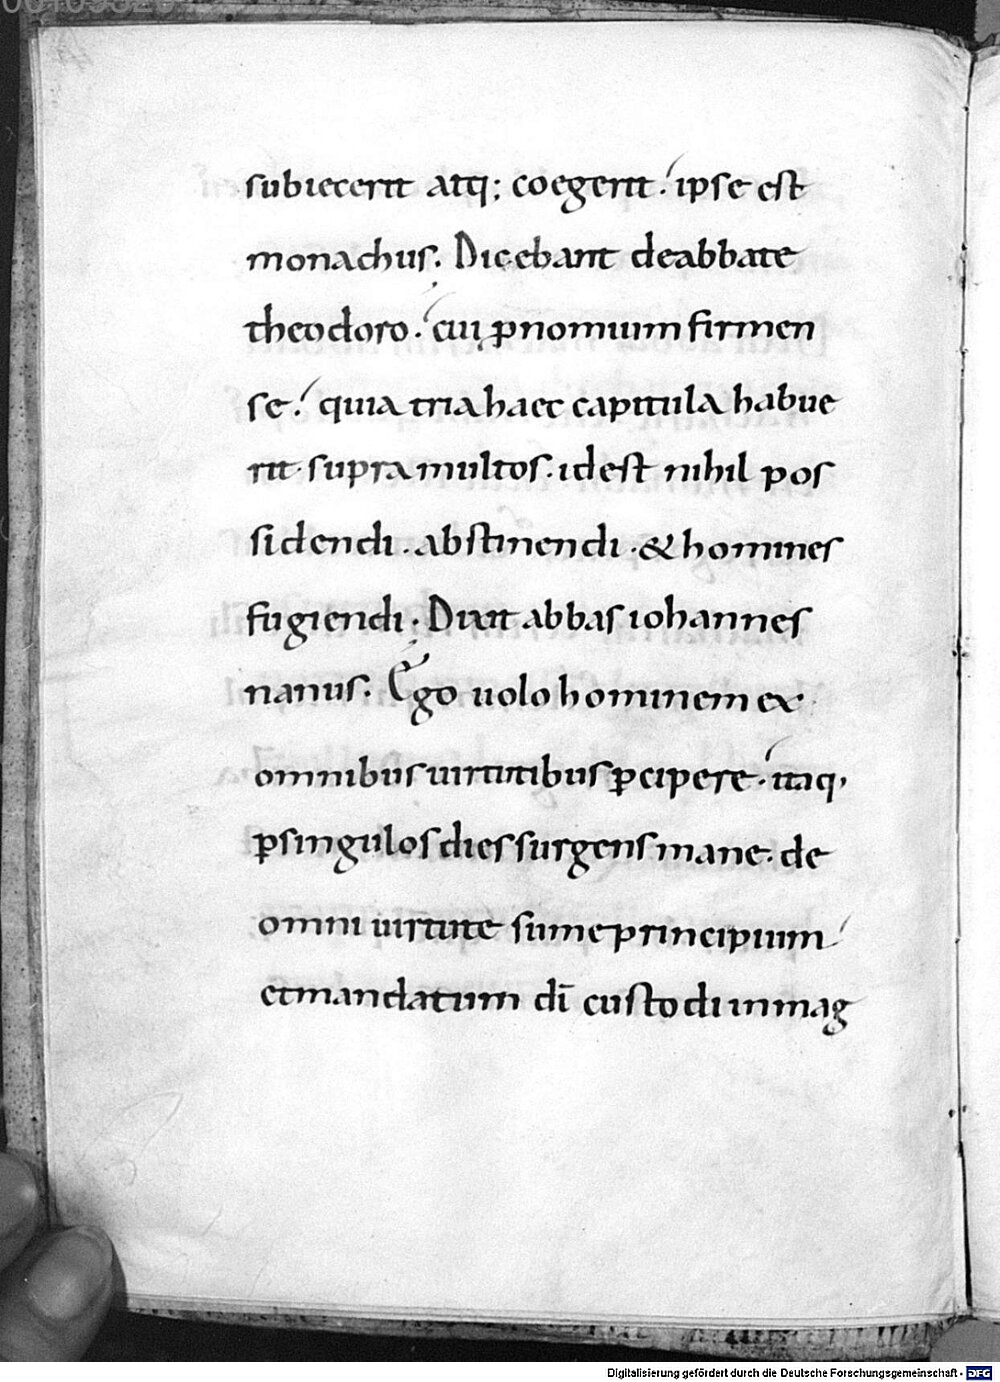 subiecerit atq; coegerit. ipse est
monachus. Dicebant deabbate
theodoro. cui p̄nomium firmen
se. quia tria haec capitula habue
rit supra multos. idest nihil pos
sidendi. abstinendi. & homines
fugiendi. Dixit abbas iohannes
nanus. Ego uolo hominem ex
omnibus uirtutibus ꝑcipere. itaq,
ꝑsingulos dies surgens mane. de
omni uirtute sume principium
et mandatum dī custodi in mag
Digitalisierung gefördert durch die Deutsche Forschungsgemeinschaft - DFG